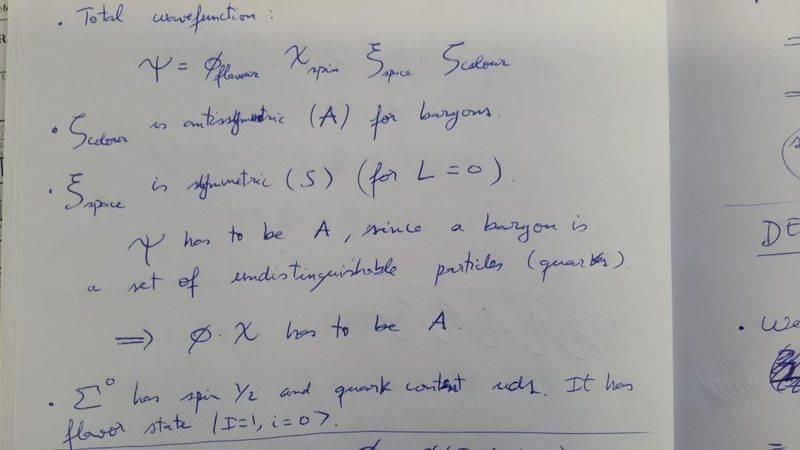 • Total wavefunction :
Ψ = φflavour · χspin · ξspace · ζcolour
• ζcolour is antisymmetric (A) for baryons.
• ξspace is symmetric (S) (for L = 0).
Ψ has to be A, since a baryon is
a set of undistinguishable particles (quarks).
⟹ φ · χ has to be A.
• Σ⁰ has spin 1/2 and quark content uds. It has
flavor state |I=1, i=0⟩.
DE
• We